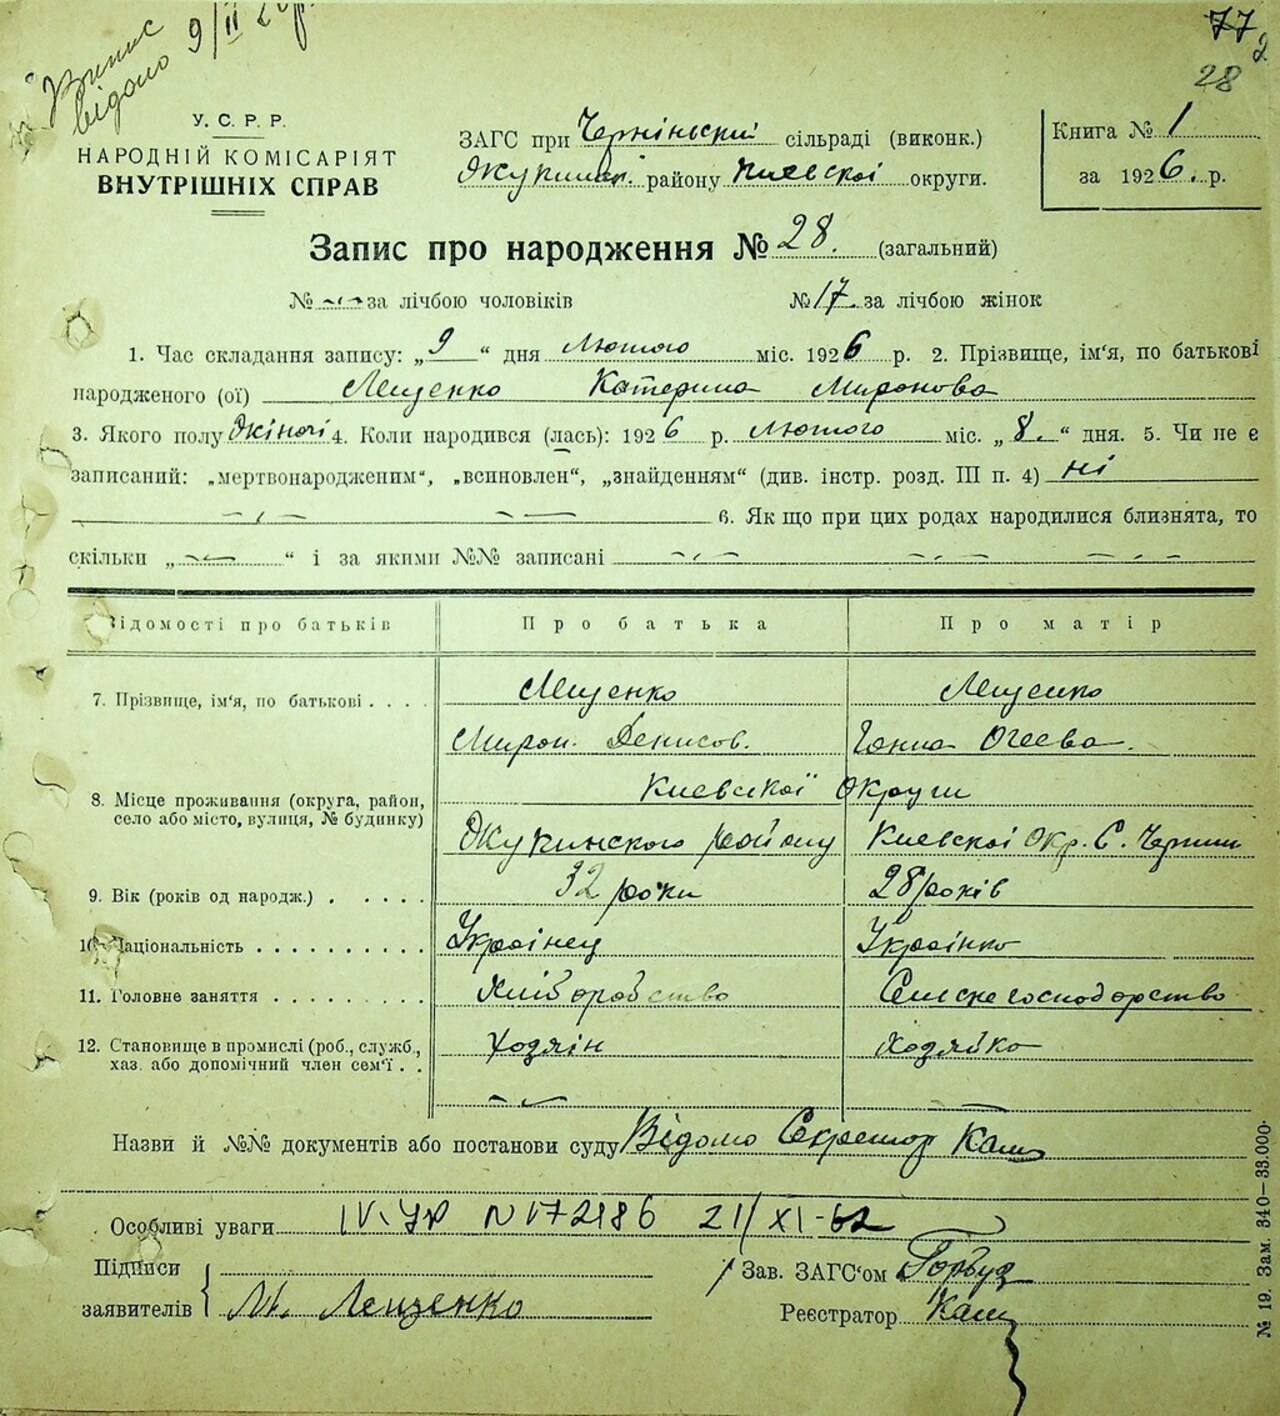 Випис
відомо 9/II 26 р.
77
2
28
У. С. Р. Р.
НАРОДНІЙ КОМІСАРІЯТ
ВНУТРІШНІХ СПРАВ
ЗАГС при Чернінський сільраді (виконк.)
району Киевскоі округи.
Книга № 1
за 1926. р.
Запис про народження № 28. (загальний)
№ за лічбою чоловіків № 17. за лічбою жінок
1. Час складання запису: „9“ дня Лютого міс. 1926 р. 2. Прізвище, ім‘я, по батькові
народженого (ої) Лещенко Катерина Миронова
3. Якого полу Жіночі 4. Коли народився (лась): 1926 р. Лютого міс. „8.“ дня. 5. Чи не є
записаний: „мертвонародженим“, „всиновлен“, „знайденням“ (див. інстр. розд. III п. 4) ні
6. Як що при цих родах народилися близнята, то
скільки „ “ і за якими №№ записані
Відомості про батьків Про батька Про матір
7. Прізвище, ім‘я, по батькові . . . . Лещенко Лещенко
Мирон. Денисов. Ганна
8. Місце проживання (округа, район, Киевскої Округи
село або місто, вулиця, № будинку) Жукинского району Киевскоі Окр. С. Чернин
9. Вік (років од народж.) . . . . . 32 роки 28 років
10. Національність . . . . . . . . . . Украінец Украінка
11. Головне заняття . . . . . . . . . Хліборобство Сельске господарство
12. Становище в промислі (роб., служб., Ходяін Ходяйка
хаз. або допомічний член сем‘ї . .
Назви й №№ документів або постанови суду Відомо Секретар Каш
Особливі уваги IV-УР N 172186 21/XI-62
Підписи
заявителів М. Лещенко
Зав. ЗАГС‘ом Горбуз
Реєстратор Каш
№ 19. Зам. 340—33.000·